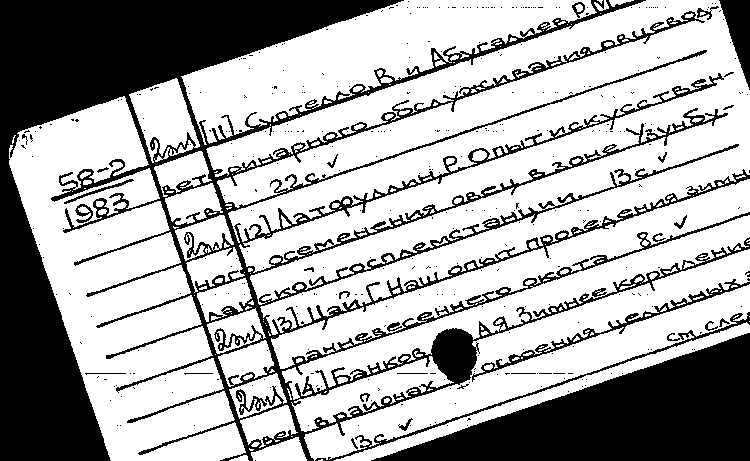 58-2
1983
2 экз [11]. Суптелло, В. и Абугалиев, Р.М.
ветеринарного обслуживания овцевод-
ства. 22 с. ✓
2 экз [12] Латфуллин, Р. Опыт искусствен-
ного осеменения овец в зоне Узунбу-
лакской госплемстанции. 13 с. ✓
2 экз [13]. Цай, Г. Наш опыт проведения зимне-
го и ранневесеннего окота. 8 с. ✓
2 экз [14.] Банков, А.Я. Зимнее кормление
овец в районах освоения целинных
13 с. ✓
см. след